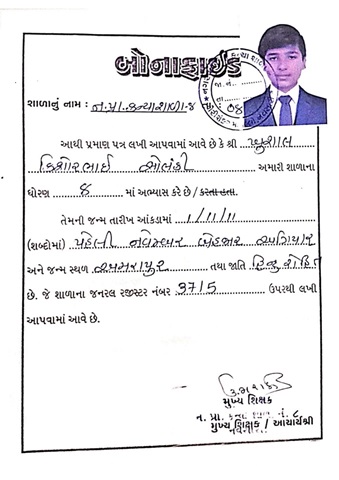 બોનાફાઇડ
શાળાનું નામ : ન.પ્રા. કન્યાશાળા-૪
આથી પ્રમાણ પત્ર લખી આપવામાં આવે છે કે શ્રી ખુશાલ
કિશોરભાઈ સોલંકી અમારી શાળાના
ધોરણ ૪ માં અભ્યાસ કરે છે / કરતા હતા.
તેમની જન્મ તારીખ આંકડામાં ૧/૧૧/૧૧
(શબ્દોમાં) પહેલી નવેમ્બર બેહજાર અગિયાર
અને જન્મ સ્થળ અમરાપુર તથા જાતિ હિન્દુ
છે. જે શાળાના જનરલ રજીસ્ટર નંબર 3715 ઉપરથી લખી
આપવામાં આવે છે.
મુખ્ય શિક્ષક
ન. પ્રા. નં. ૮
મુખ્ય શિક્ષક / આચાર્યશ્રી